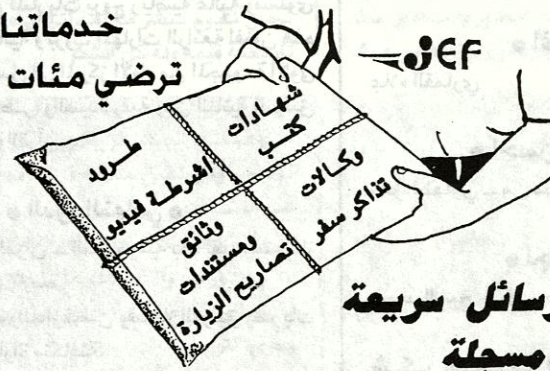 خدماتنا
ترضي مئات
JEF
شهادات
كتب
طرود
اشرطة فيديو
وكالات
تذاكر سفر
وثائق
ومستندات
تصاريح الزيارة
رسائل سريعة
مسجلة